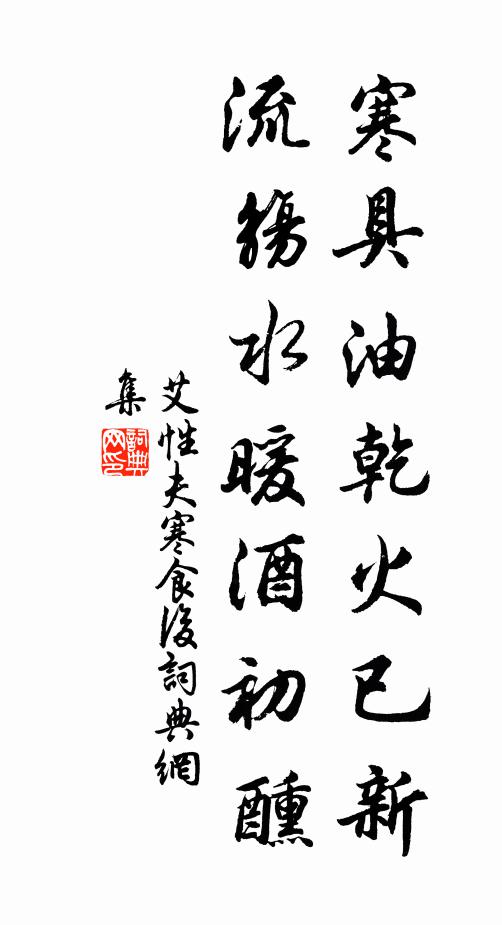 寒具油乾火已新
流觴水暖酒初醺
艾性夫寒食後詞典網
集
詞典网印